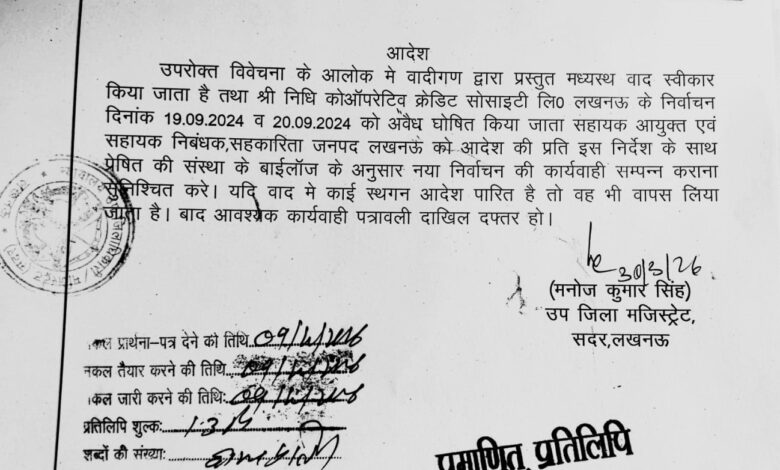 आदेश
उपरोक्त विवेचना के आलोक मे वादीगण द्वारा प्रस्तुत मध्यस्थ वाद स्वीकार
किया जाता है तथा श्री निधि कोऑपरेटिव क्रेडिट सोसाइटी लि0 लखनऊ के निर्वाचन
दिनांक 19.09.2024 व 20.09.2024 को अवैध घोषित किया जाता सहायक आयुक्त एवं
सहायक निबंधक,सहकारिता जनपद लखनऊ को आदेश की प्रति इस निर्देश के साथ
प्रेषित की संस्था के बाईलॉज के अनुसार नया निर्वाचन की कार्यवाही सम्पन्न कराना
सुनिश्चित करे। यदि वाद मे काई स्थगन आदेश पारित है तो वह भी वापस लिया
जाता है। बाद आवश्यक कार्यवाही पत्रावली दाखिल दफ्तर हो।
30/3/26
(मनोज कुमार सिंह)
उप जिला मजिस्ट्रेट,
सदर,लखनऊ
प्रार्थना-पत्र देने की तिथि
नकल तैयार करने की तिथि
नकल जारी करने की तिथि:
प्रतिलिपि शुल्क:
शब्दों की संख्या:
प्रमाणित प्रतिलिपि